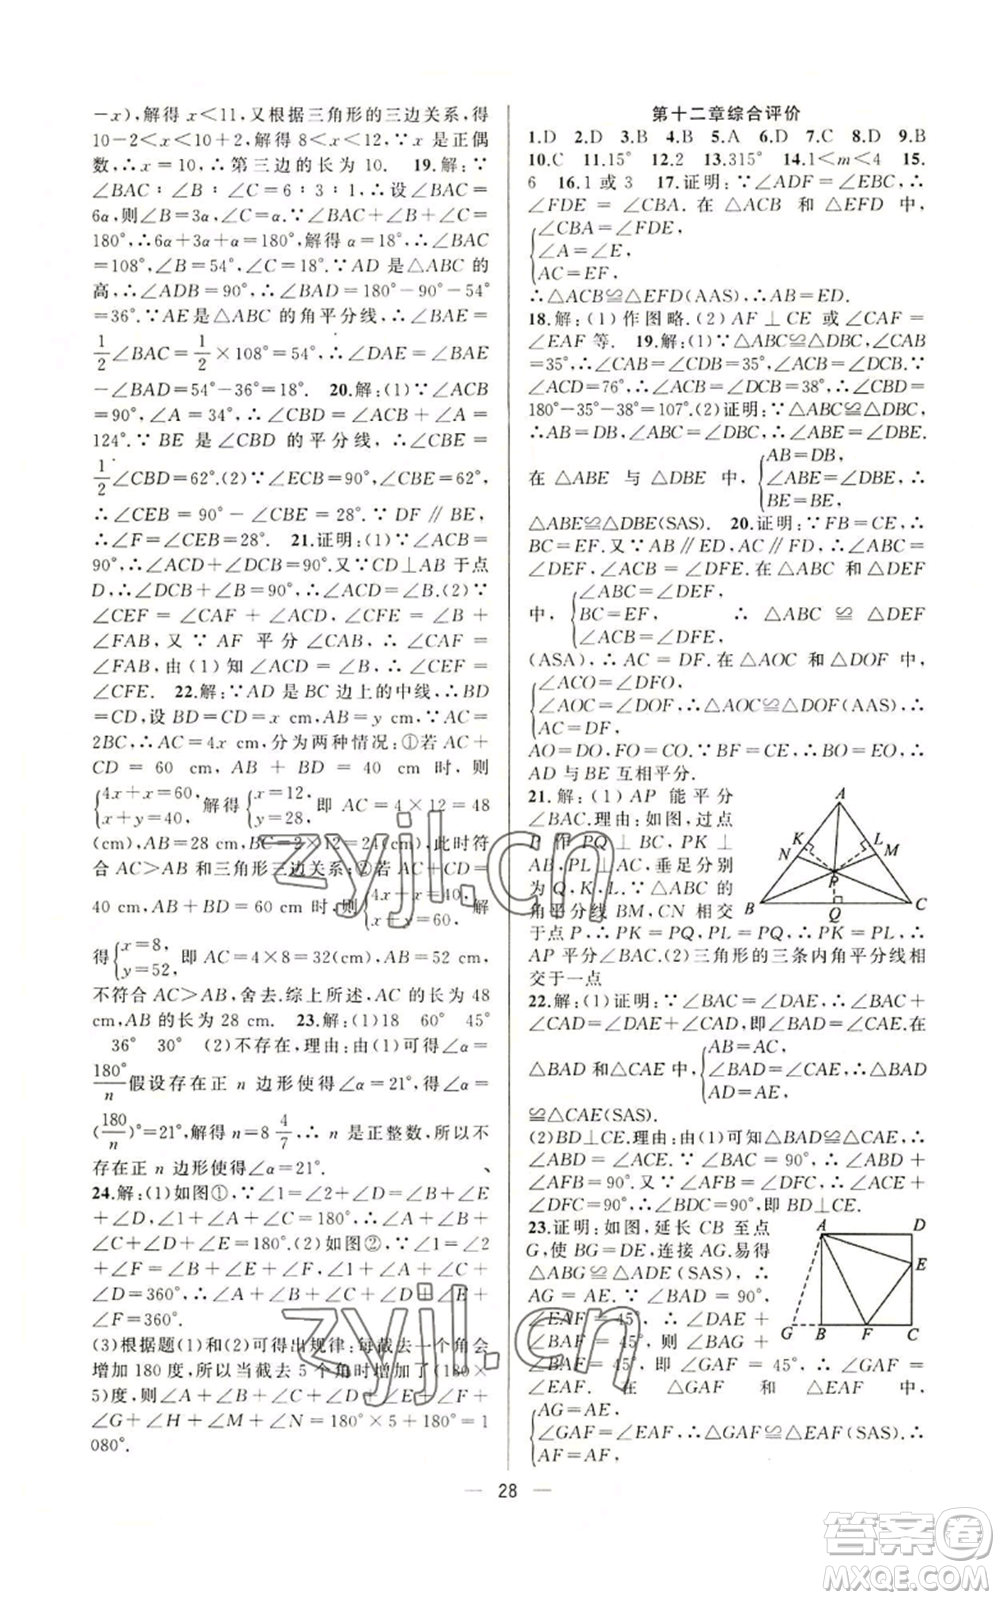 -x),解得 x<11,又根据三角形的三边关系,得
10-2<x<10+2,解得 8<x<12,∵x 是正偶
数,∴x=10,∴第三边的长为 10. 19.解:∵
∠BAC∶∠B∶∠C=6∶3∶1,∴设∠BAC=
6α,则∠B=3α,∠C=α,∵∠BAC+∠B+∠C=
180°,∴6α+3α+α=180°,解得 α=18°,∴∠BAC
=108°,∠B=54°,∠C=18°.∵AD 是△ABC 的
高,∴∠ADB=90°,∴∠BAD=180°-90°-54°
=36°.∵AE是△ABC 的角平分线,∴∠BAE=
1/2∠BAC=1/2×108°=54°,∴∠DAE=∠BAE
-∠BAD=54°-36°=18°. 20.解:(1)∵∠ACB
=90°,∠A=34°,∴∠CBD=∠ACB+∠A=
124°.∵BE 是∠CBD 的平分线,∴∠CBE=
1/2∠CBD=62°.(2)∵∠ECB=90°,∠CBE=62°,
∴∠CEB=90°-∠CBE=28°.∵DF∥BE,
∴∠F=∠CEB=28°. 21.证明:(1)∵∠ACB=
90°,∴∠ACD+∠DCB=90°.∵CD⊥AB 于点
D,∴∠DCB+∠B=90°,∴∠ACD=∠B.(2)∵
∠CEF=∠CAF+∠ACD,∠CFE=∠B+
∠FAB,又∵AF 平分∠CAB,∴∠CAF=
∠FAB,由(1)知∠ACD=∠B,∴∠CEF=
∠CFE. 22.解:∵AD 是 BC 边上的中线,∴BD
=CD,设 BD=CD=x cm,AB=y cm,∵AC=
2BC,∴AC=4x cm,分为两种情况:①若 AC+
CD=60 cm,AB+BD=40 cm 时,则
{4x+x=60, x+y=40, 解得{x=12, y=28, 即 AC=4×12=48
(cm),AB=28 cm,BC=2×12=24(cm),此时符
合 AC>AB 和三角形三边关系;②若 AC+CD=
40 cm,AB+BD=60 cm 时,则{4x+x=40, x+y=60, 解
得{x=8, y=52, 即 AC=4×8=32(cm),AB=52 cm,
不符合 AC>AB,舍去.综上所述,AC 的长为 48
cm,AB 的长为 28 cm. 23.解:(1)18 60° 45°
36° 30° (2)不存在,理由:由(1)可得∠α=
180°/n 假设存在正 n 边形使得∠α=21°,得∠α=
(180/n)°=21°,解得 n=8 4/7,∴n 是正整数,所以不
存在正 n 边形使得∠α=21°.
24.解:(1)如图①,∵∠1=∠2+∠D=∠B+∠E
+∠D,∠1+∠A+∠C=180°,∴∠A+∠B+∠C
+∠D+∠E=180°.(2)如图②,∵∠1=∠2
+∠F=∠B+∠E+∠F,∠1+∠A+∠C+
∠D=360°,∴∠A+∠B+∠C+∠D+∠E+
∠F=360°.
(3)根据题(1)和(2)可得出规律:每截去一个角会
增加 180 度,所以当截去 5 个角时增加了(180×
5)度,则∠A+∠B+∠C+∠D+∠E+∠F+
∠G+∠H+∠M+∠N=180°×5+180°=1
080°.
第十二章综合评价
1.D 2.D 3.B 4.B 5.A 6.D 7.C 8.D 9.B
10.C 11.15° 12.2 13.315° 14.1<m<4 15.
6 16.1 或 3 17.证明:∵∠ADF=∠EBC,∴
∠FDE=∠CBA.在 △ACB 和 △EFD 中,
{∠CBA=∠FDE, ∠A=∠E, AC=EF,
∴△ACB≌△EFD(AAS),∴AB=ED.
18.解:(1)作图略.(2)AF⊥CE 或∠CAF=
∠EAF 等. 19.解:(1)∵△ABC≌△DBC,∠CAB
=35°,∴∠CAB=∠CDB=35°,∠ACB=∠DCB.∵
∠ACD=76°,∴∠ACB=∠DCB=38°,∴∠CBA=
180°-35°-38°=107°.(2)证明:∵△ABC≌△DBC,
∴AB=DB,∠ABC=∠DBC,∴∠ABE=∠DBE.
在 △ABE 与 △DBE 中,{AB=DB, ∠ABE=∠DBE, BE=BE, ∴
△ABE≌△DBE(SAS). 20.证明:∵FB=CE,∴
BC=EF.又∵AB∥ED,AC∥DF,∴∠ABC=
∠DEF,∠ACB=∠DFE.在△ABC 和△DEF
中,{∠ABC=∠DEF, BC=EF, ∠ACB=∠DFE, ∴△ABC≌△DEF
(ASA),∴AC=DF.在△AOC 和△DOF 中,
{∠ACO=∠DFO, ∠AOC=∠DOF, AC=DF, ∴△AOC≌△DOF(AAS),∴
AO=DO,FO=CO.∵BF=CE,∴BO=EO,∴
AD 与 BE 互相平分.
21.解:(1)AP 能平分
∠BAC.理由:如图,过点
P 作 PQ⊥BC,PK⊥
AB,PL⊥AC,垂足分别
为 Q、K、L.∵△ABC 的
角平分线 BM,CN 相交
于点 P,∴PK=PQ,PL=PQ,∴PK=PL,∴
AP 平分∠BAC.(2)三角形的三条内角平分线相
交于一点
A
K
L
N
M
P
B
Q
C
22.解:(1)证明:∵∠BAC=∠DAE,∴∠BAC+
∠CAD=∠DAE+∠CAD,即∠BAD=∠CAE.在
△BAD 和△CAE 中,{AB=AC, ∠BAD=∠CAE, AD=AE, ∴△BAD
≌△CAE(SAS).
(2)BD⊥CE.理由:由(1)可知△BAD≌△CAE,
∴∠ADB=∠E.∵∠DAE=90°,∴∠E+
∠AFB=90°.又∵∠AFB=∠DFC,∴∠ADB+
∠DFC=90°,∴∠DCB=90°,即 BD⊥CE.
23.证明:如图,延长 CB 至点
G,使 BG=DE,连接 AG.易得
△ABG≌△ADE(SAS),∴
AG=AE,∠DAE=∠BAG.
又∵∠EAF=45°,∠BAD=
90°,∴∠DAE+
∠BAF=45°,则∠BAG+
∠BAF=45°,∴∠GAF
=∠EAF.在△GAF 和△EAF 中,
{AG=AE, ∠GAF=∠EAF, AF=AF, ∴△GAF≌△EAF(SAS).∴
A
D
E
G
B
F
C
28
zyjl.cn
zyjl.cn
答案圈
MXQE.COM